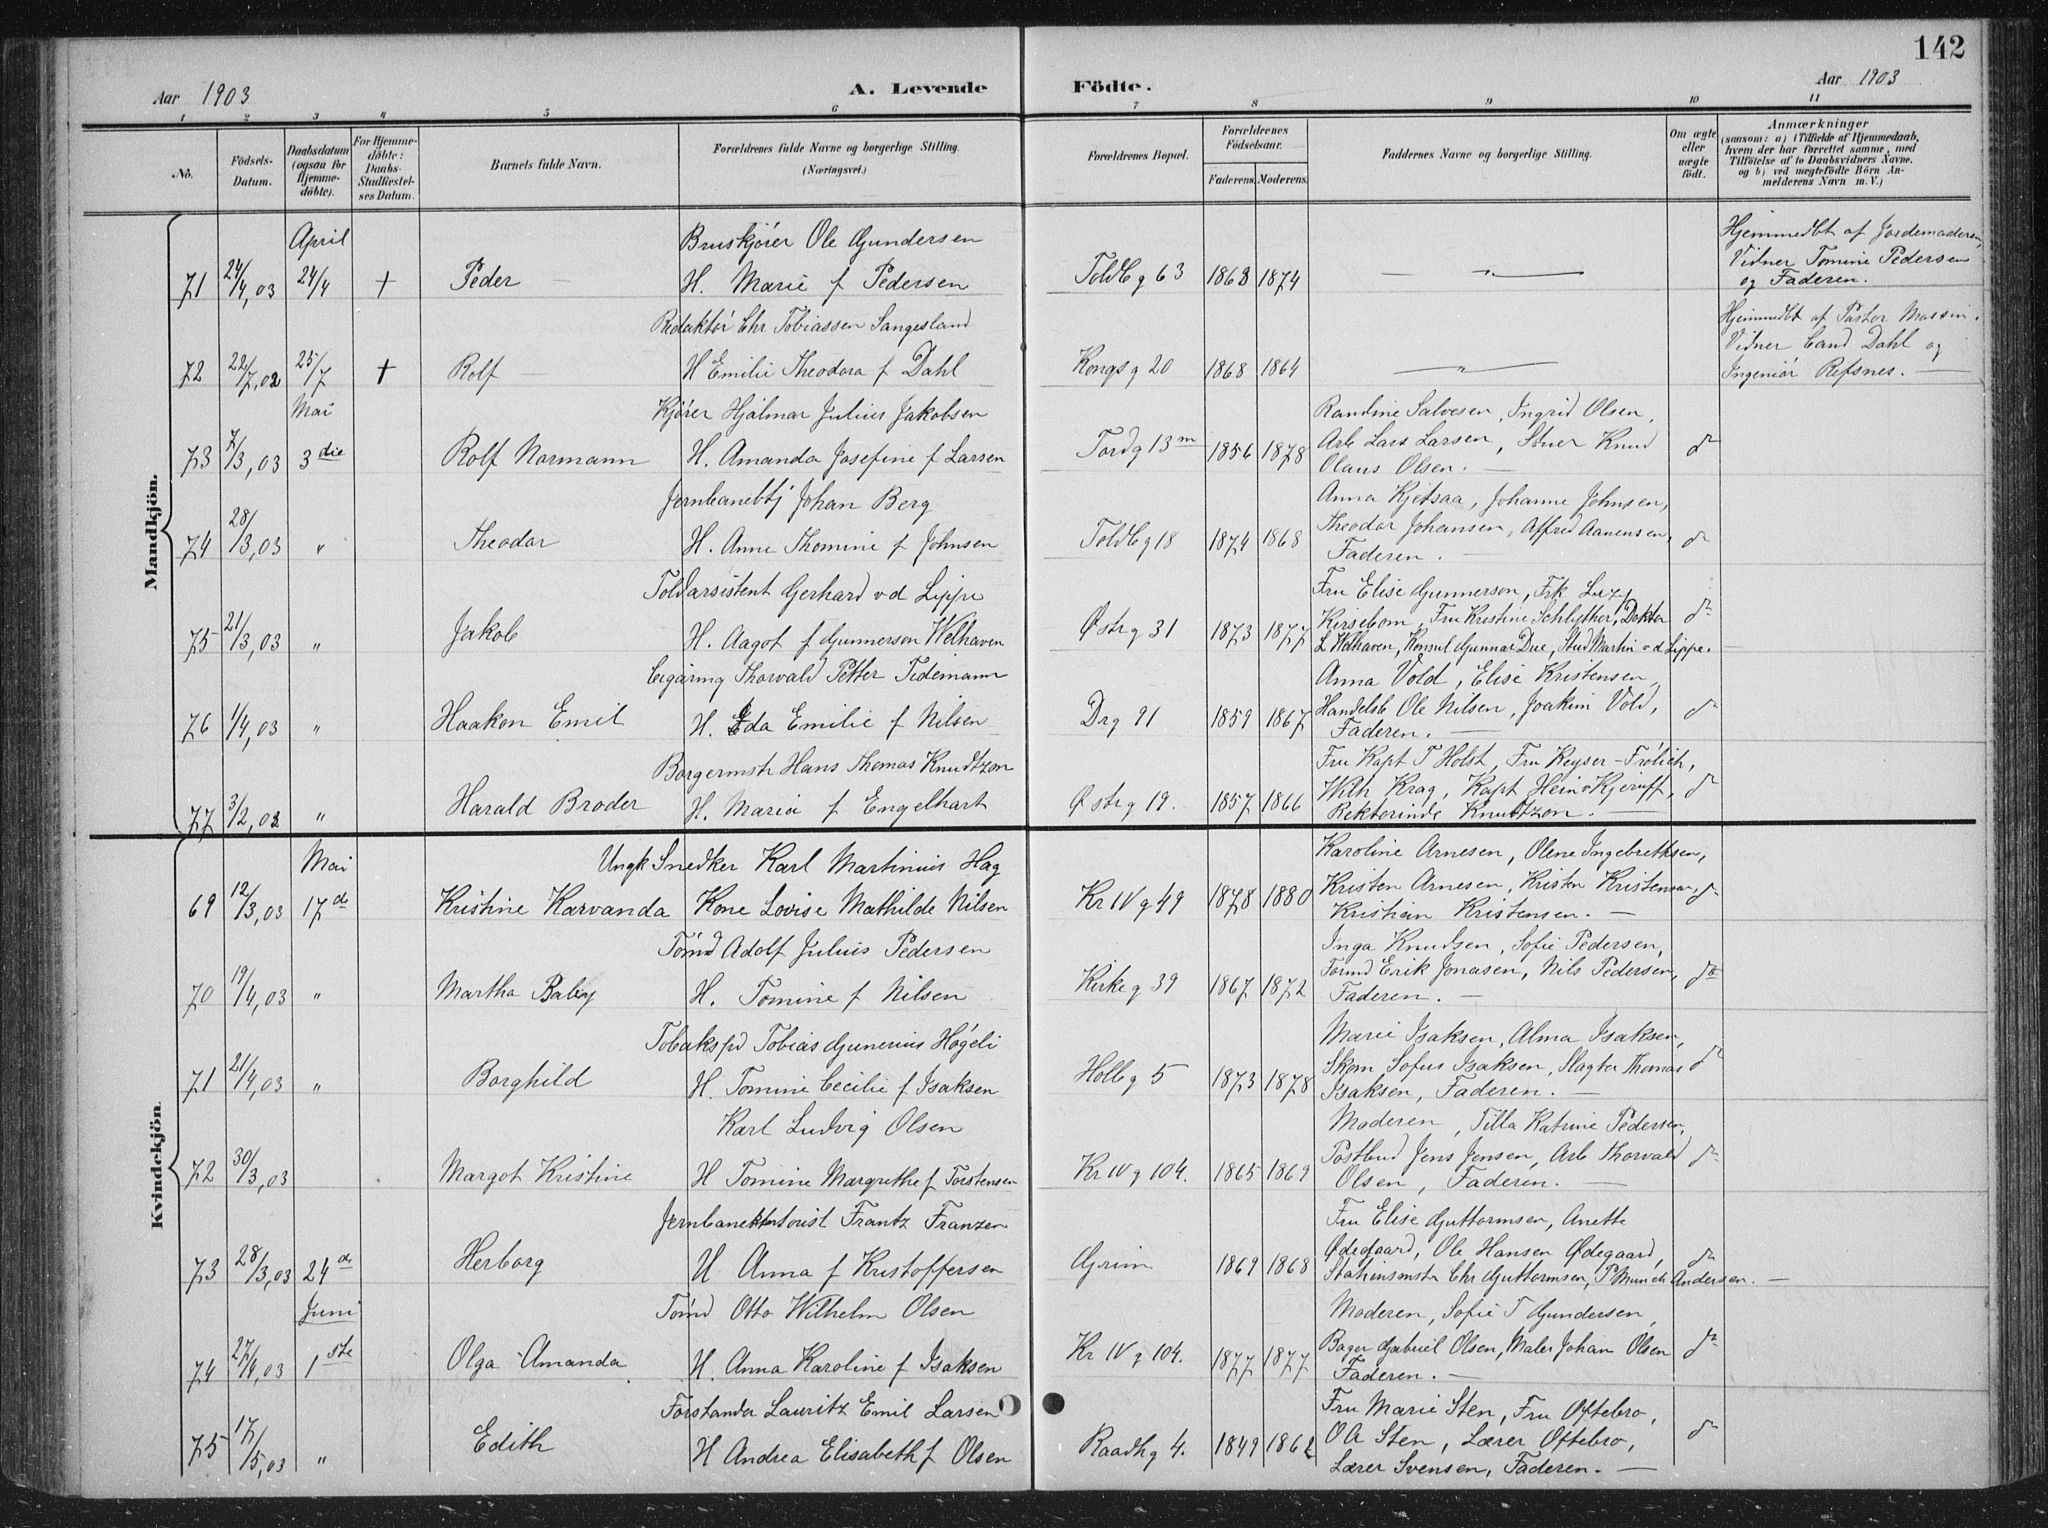 142
Aar 1903
A. Levende
Födte.
Aar 1903
1 2 3 4 5 6 7 8 9 10 11
No.
Födsels-
Datum.
Daabsdatum
(ogsaa for
Hjemme-
döbte).
For Hjemme-
döbte:
Daabs-
Stadfæstel-
ses Datum.
Barnets fulde Navn.
Forældrenes fulde Navne og borgerlige Stilling.
(Næringsvei.)
Forældrenes Bopæl.
Forældrenes
Födselsaar.
Faderens. Moderens.
Faddernes Navne og borgerlige Stilling.
Om ægte
eller
uægte
født.
Anmærkninger
(saasom: a) i Tilfælde af Hjemmedaab,
hvem der har forrettet samme, med
Tilföielse af to Daabsvidners Navne.
og b) ved uægtefödte Börn An-
melderens Navn m. V.)
Mandkjön.
April
Bruskjører Ole Gundersen
Hjemmedbt af Jordemoderen,
71 24/4, 03 24/4 + Peder — H. Marie f Pedersen Toldbg 63 1863 1874 — " — Vidner Tomine Pedersen
og Faderen.
Redaktør Chr Tobiassen Sangesland
Hjemmedbt af Pastor
72 22/7, 02 25/7 + Rolf — H Emilie Theodora f Dahl Kongsg 20 1868 1864 — " — Vidner Cand Dahl og
Ingeniør Refsnes. —
Mai
Kjører Hjalmar Julius Jakobsen
Randine Salvesen, Ingrid Olsen,
73 7/3, 03 3die Rolf Normann H. Amanda Josefine f Larsen Tordg 13m 1856 1878 Arb Lars Larsen, Stuer Knud
Olaus Olsen. —
Jernbanebtj Johan Berg
Anna Kjetsaa, Johanne Johnsen,
74 28/3, 03 " Theodor H. Anne Thomine f Johnsen Toldbg 18 1874 1868 Theodor Johansen, Alfred Aanensen,
Faderen. —
Toldassistent Gerhard v d Lippe
Fru Elise Gunnerson, Frk
75 21/3, 03 " Jakob H. Aagot f Gunnerson Welhaven Østrg 31 1873 1877 Kirsebom, Fru Kristine Schlytter, Doktor
L Welhaven, Konsul Gunnar Due, Stud Martin v d Lippe.
Thorvald Petter Tidemann
Anna Vold, Elise Kristensen,
76 1/4, 03 " Haakon Emil H. Eda Emilie f Nilsen Drg 91 1859 1867 Handelsb Ole Nilsen, Joakim Vold,
Faderen. —
Borgermstr Hans Thomas Knudtzon
Fru Kapt T Holst, Fru Keyser-Frölich,
77 3/2, 02 " Harald Broder H. Maria f Engelhart Østrg 19. 1857 1866 Wilh Krag, Kapt Kjerulf,
Rektorinde Knudtzon. —
Kvindekjön.
Mai
Ungk Snedker Karl Martinius Hag
Karoline Arnesen, Olene Ingebrethsen,
69 12/3, 03 17d Kristine Karvanda Kone Lovise Mathilde Nilsen Kr IV g 49 1878 1880 Kristen Arnesen, Kristen Kristensen,
Kristian Kristensen. —
Tømd Adolf Julius Pedersen
Inga Knudsen, Sofie Pedersen,
70 19/4, 03 " Martha H. Tomine f Nilsen Kirkeg 39 1867 1872 Formd Erik Jonasen, Nils Pedersen,
Faderen. —
Tobakspd Tobias Gunerius Høgeli
Marie Isaksen, Alma Isaksen,
71 21/4, 03 " Borghild H. Tomine Cecilie f Isaksen Holbg 5 1873 1878 Skom Sofus Isaksen, Slagter Thomas
Isaksen, Faderen. —
Karl Ludvig Olsen
Moderen, Tilla Katrine Pedersen,
72 30/3, 03 Margot Kristine H Tomine Margrethe f Torstensen Kr IV g 104. 1865 1869 Postbud Jens Jensen, Arb Thorvald
Olsen, Faderen. —
Frantz Franzen
Fru Elise Guttormsen, Anette
73 28/3, 03 24d Herborg H Anna f Kristoffersen Grim 1869 1868 Ødegaard, Ole Hansen Ødegaard,
Stationsmstr Chr Guttormsen, P Munch Andersen. —
Juni
Tømd Otto Wilhelm Olsen
Moderen, Sofie T Gundersen,
74 27/4, 03 1ste Olga Amanda H. Anna Karoline f Isaksen Kr IV g 104. 1877 1877 Bager Gabriel Olsen, Maler Johan Olsen
Faderen. —
Forstander Lauritz Emil Larsen
Fru Marie Sten, Fru Oftebro,
75 17/5, 03 " Edith H Andrea Elisabeth f Olsen Raadhg 4. 1849 1862 O A Sten, Lærer Oftebro,
Lærer Svensen, Faderen. —